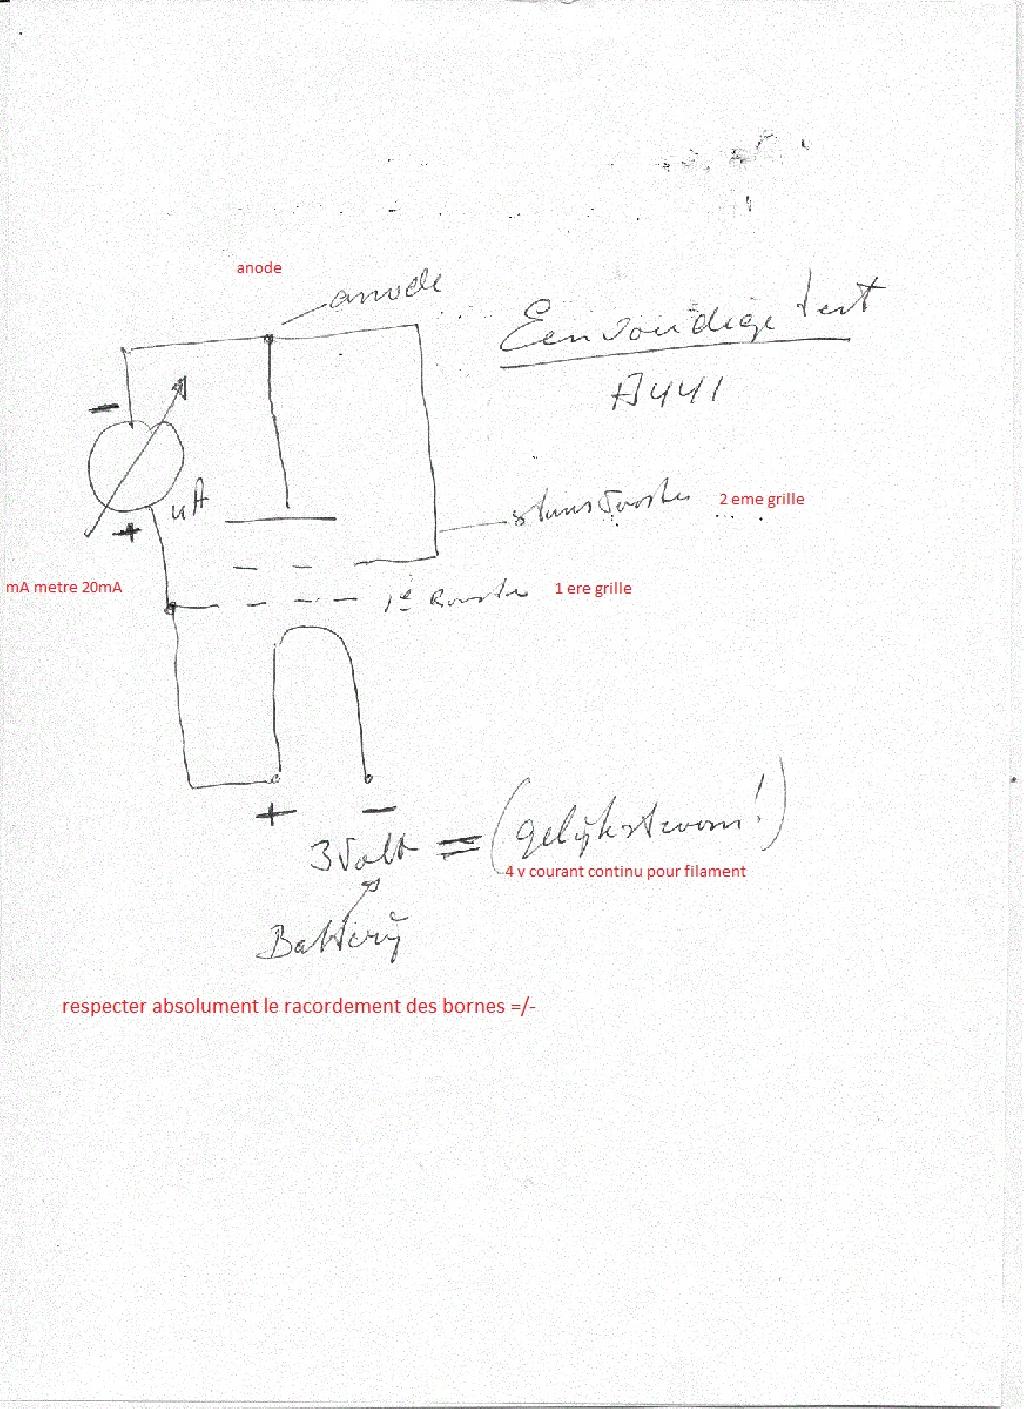 anode
anode
Eenvoudige test
A441
-
µA
+
stuurrooster
2 eme grille
mA metre 20mA
1e rooster
1 ere grille
+ -
3 Volt = (gelijkstroom!)
4 v courant continu pour filament
Battery
respecter absolument le racordement des bornes =/-